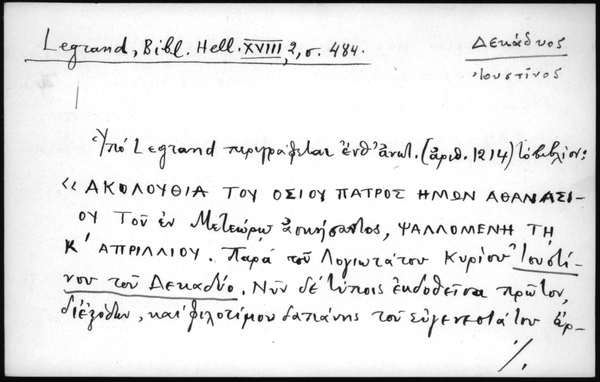 Legrand, Bibl. Hell. XVIII, 2, σ. 484.
Δεκάδυος
Ἰουστῖνος
Ὑπό Legrand περιγράφεται ἐνθ' ἀνωτ. (ἀριθ. 1214) τὸ βιβλίον:
« ΑΚΟΛΟΥΘΙΑ ΤΟΥ ΟΣΙΟΥ ΠΑΤΡΟΣ ΗΜΩΝ ΑΘΑΝΑΣΙ-
ΟΥ Τοῦ ἐν Μετεώρῳ ἀσκήσαντος, ΨΑΛΛΟΜΕΝΗ ΤΗ
Κ' ΑΠΡΙΛΛΙΟΥ. Παρά τοῦ Λογιωτάτου Κυρίου Ἰουστί-
νου τοῦ Δεκαδύο. Νῦν δέ τύποις ἐκδοθεῖσα πρῶτον,
διεξόδῳ, καί φιλοτίμου δαπάνης τοῦ εὐγενεστάτου ἄρ-
./.